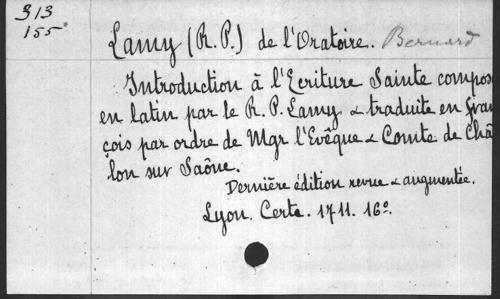 313
155
Lamy (R. P.) de l'Oratoire. Bernard
Introduction à l'Ecriture Sainte compos
en latin par le R. P. Lamy & traduite en Fran
çois par ordre de Mgr l'Evêque & Comte de Châ
lon sur Saône.
Dernière édition revue & augmentée.
Lyon. Certe. 1711. 16º.